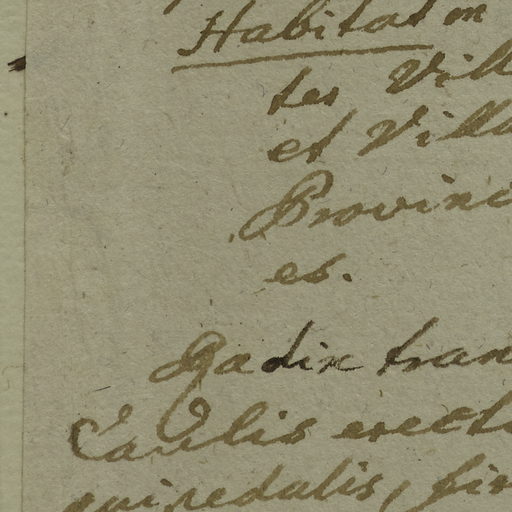 Habitat in
ter Vill
et Villa
Provinc
es.
Radix tran
Caulis erect
quipedalis, fir